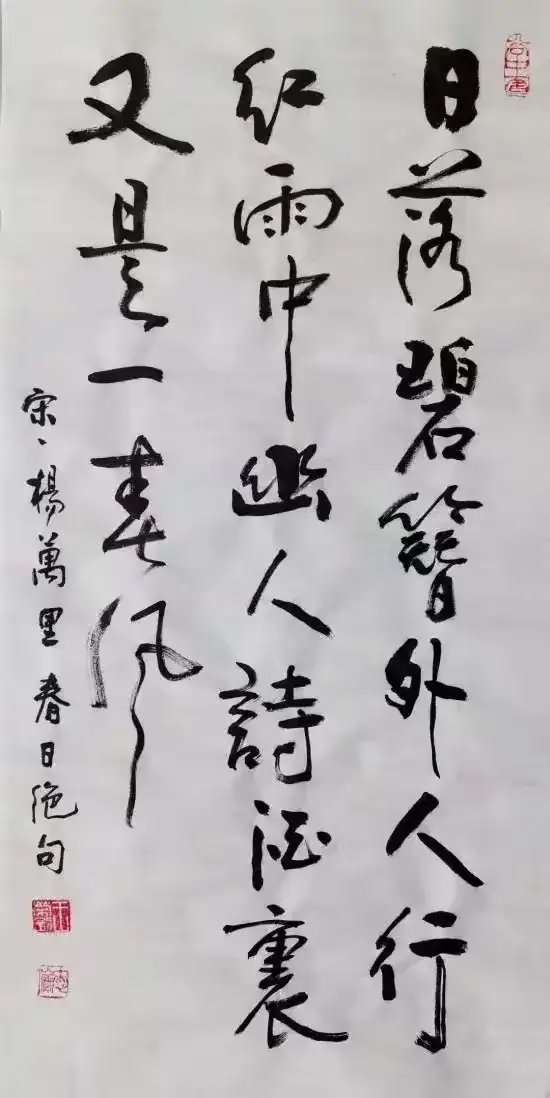 日落碧簪外人行
紅雨中幽人詩酒裏
又是一春風
宋、楊萬里春日絶句